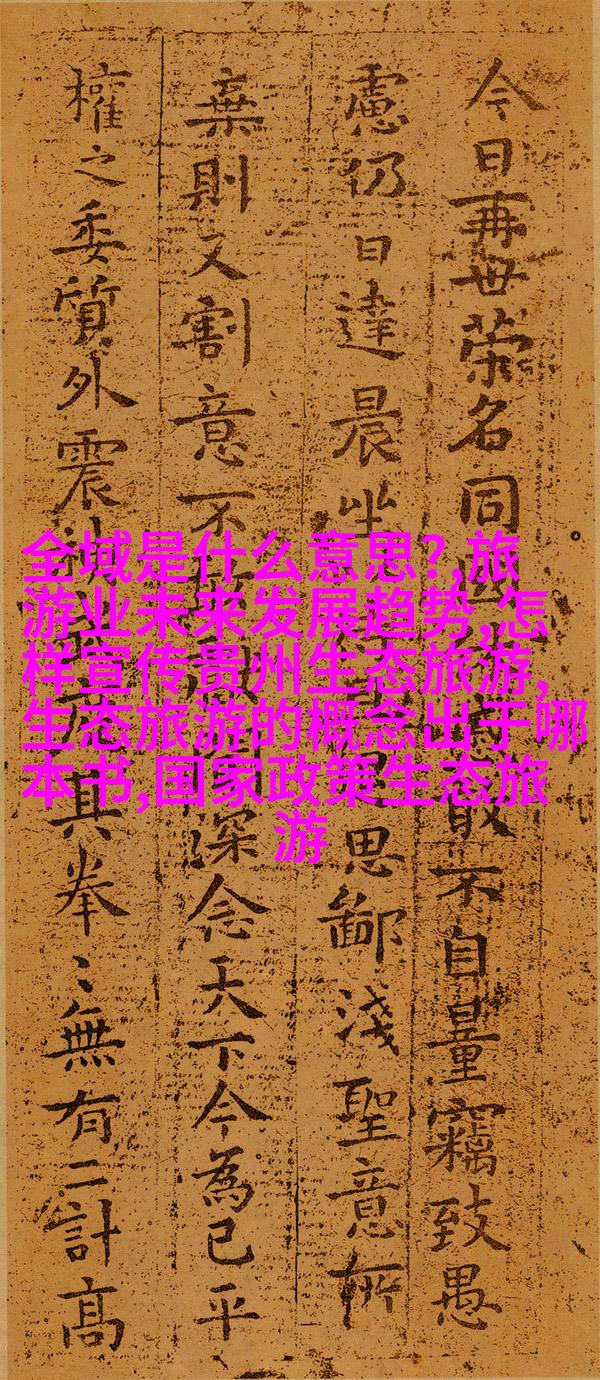 今日再世荣名同國慼敢不自量竊致愚
慮仍日達晨坐思鄙淺聖意所
棄則又割意不聞深念天下今為已平
權之委質外震神度其拳〻無有二計高
全域是什么意思?,旅
游业未来发展趋势,怎
样宣传贵州生态旅游,
生态旅游的概念出于哪
本书,国家政策生态旅
游